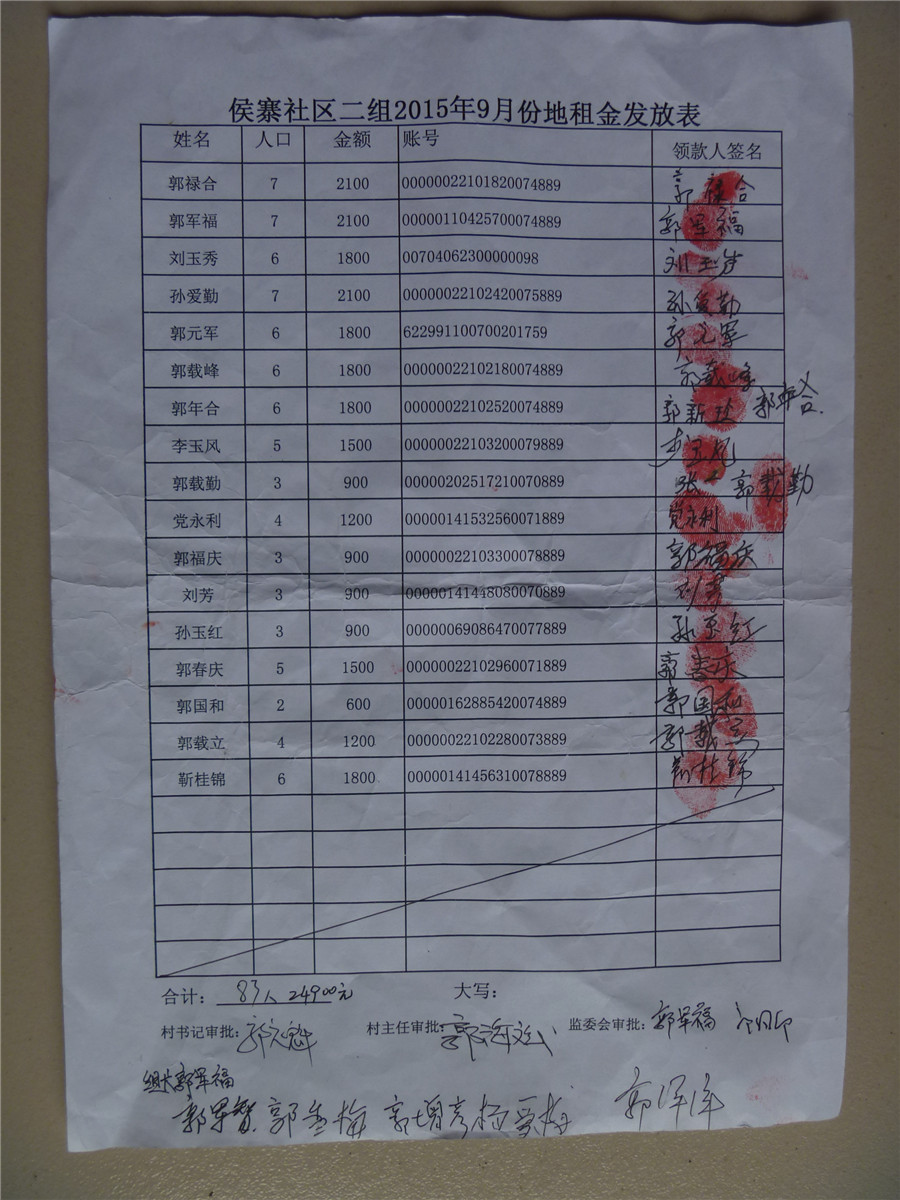 侯寨社区二组2015年9月份地租金发放表
姓名 人口 金额 账号 领款人签名
郭禄合 7 2100 00000022101820074889 郭禄合
郭军福 7 2100 00000110425700074889 郭军福
刘玉秀 6 1800 00704062300000098 刘玉秀
孙爱勤 7 2100 00000022102420075889 孙爱勤
郭元军 6 1800 622991100700201759 郭元军
郭载峰 6 1800 00000022102180074889 郭载峰
郭年合 6 1800 00000022102520074889 郭新 郭年合
李玉风 5 1500 00000022103200079889 李玉风
郭载勤 3 900 00000202517210070889 张 郭载勤
党永利 4 1200 00000141532560071889 党永利
郭福庆 3 900 00000022103300078889 郭福庆
刘芳 3 900 00000141448080070889 刘芳
孙玉红 3 900 00000069086470077889 孙玉红
郭春庆 5 1500 00000022102960071889 郭春庆
郭国和 2 600 00000162885420074889 郭国和
郭载立 4 1200 00000022102280073889 郭载立
靳桂锦 6 1800 00000141456310078889 靳桂锦
合计： 83人 24900元 大写：
村书记审批： 郭元魁 村主任审批： 郭海 监委会审批： 郭军福
组长郭军福
郭军 郭 梅 郭增彦 杨 梅 郭